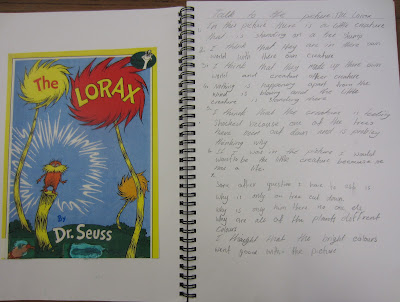 The
LORAX
By
Dr. Seuss
Talk to the picture The Lorax
1. In this picture there is a little creature
that is standing on a tree stump
2. I think that they are in there own
world with there own creature
3. I think that they made up there own
world and creature
4. Nothing is happening apart from the
wind is blowing and the little
creature is standing there
5. I think that the creature is feeling
shocked because all of the trees
have been cut down and is probley
thinking why
6. If I was in the picture I would
would be the little creature because he
has a life
Some other question I have to ask is
why is only on tree cut down
why is only him there no one els
why are all of the plants different
colours
I thought that the bright colours
went great with the picture